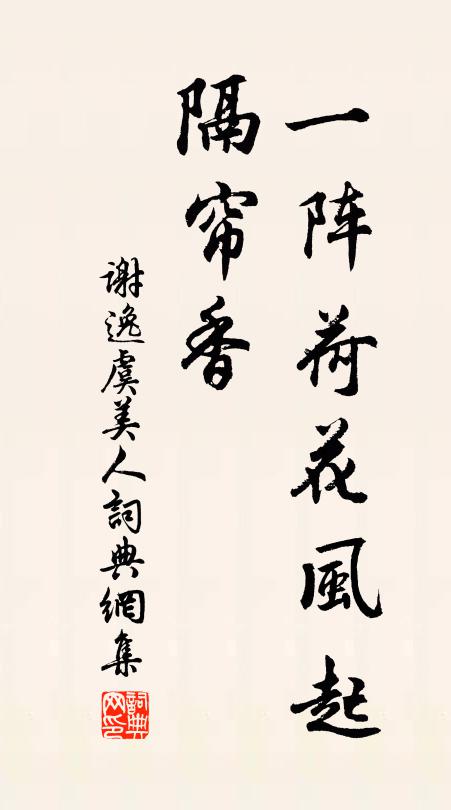 一阵荷花風起
隔帘香
谢逸虞美人詞典網集
詞典网印